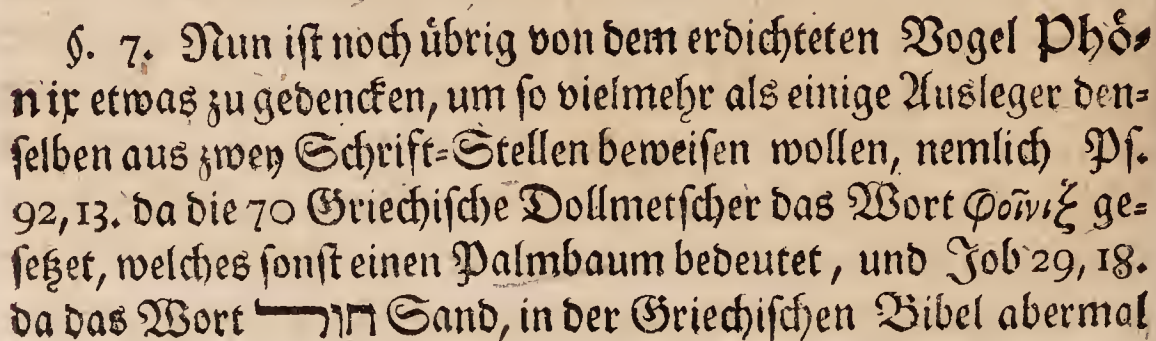 §. 7. Nun iſt noch uͤbrig von dem erdichteten Vogel Phoͤ⸗
nix etwas zu gedencken, um ſo vielmehr als einige Ausleger den⸗
ſelben aus zwey Schrift⸗Stellen beweiſen wollen, nemlich Pſ.
92, 13. da die 70 Griechiſche Dollmetſcher das Wort φοῖνιξ ge⸗
ſetzet, welches ſonſt einen Palmbaum bedeutet, und Job 29, 18.
da das Wort חור Sand, in der Griechiſchen Bibel abermal